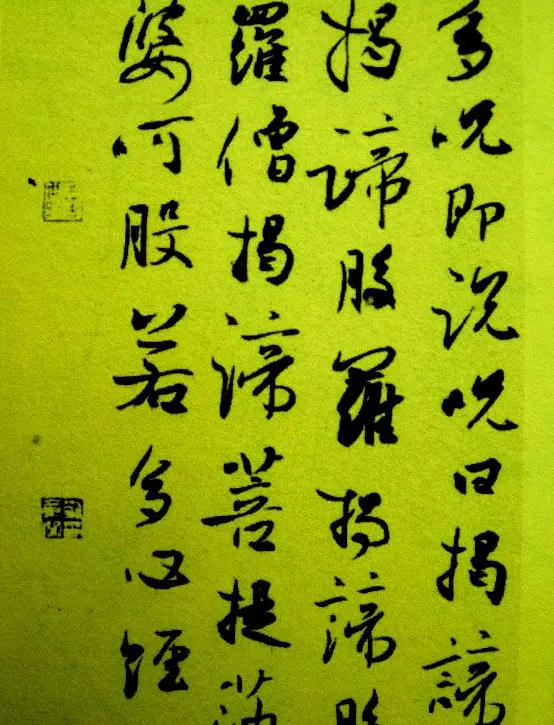 多呪即說呪曰揭諦
揭諦般羅揭諦般
羅僧揭諦菩提莎
婆呵般若多心經